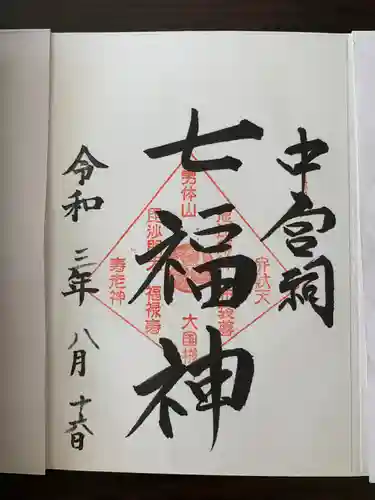 中宮祠
七福神
令和三年八月十六日
男体山
弁財天
毘沙門天
福禄寿
寿老神
大国様